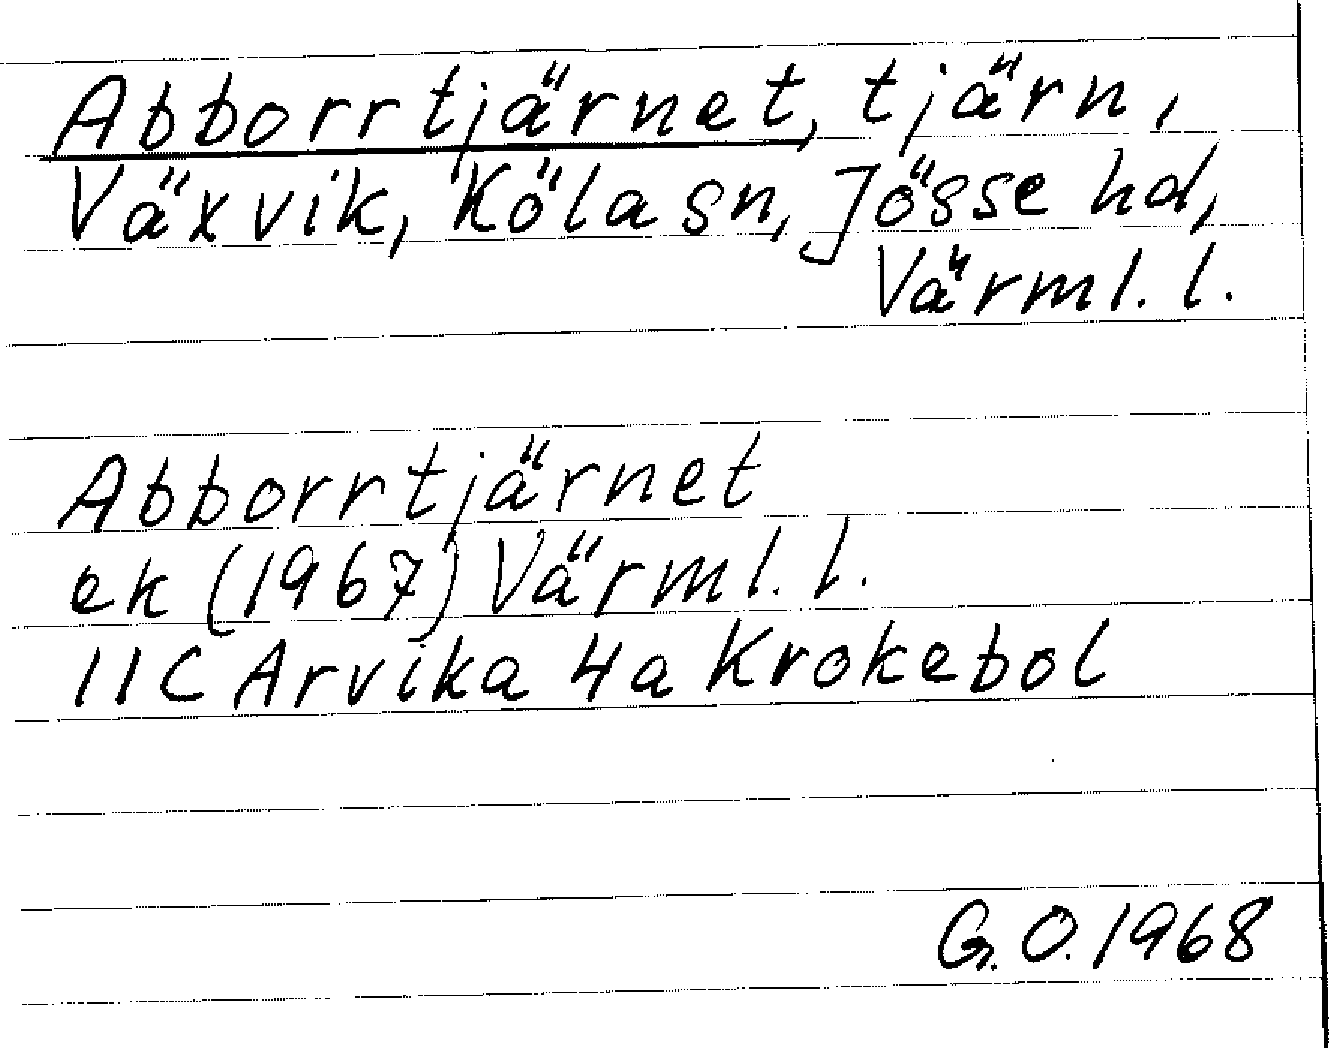 Abborrtjärnet, tjärn,
Växvik, Köla sn, Jösse hd,
Värml. l.
Abborrtjärnet
ek (1967) Värml. l.
11C Arvika 4a Krokebol
G. O. 1968